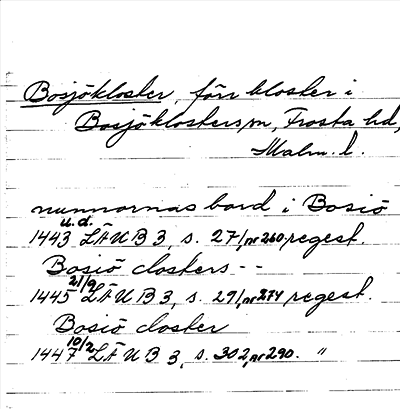 Bosjökloster, förr kloster i
Bosjöklosters sn, Frosta hd,
Malm. l.
nunnornas bord i Bosiö
1443 u.d. LÄUB 3, s. 271, nr 260, regest.
Bosiö closters --
1445 21/9 LÄUB 3, s. 291, nr 274 regest.
Bosiö closter
1447 10/2 LÄUB 3, s. 302, nr 290. "